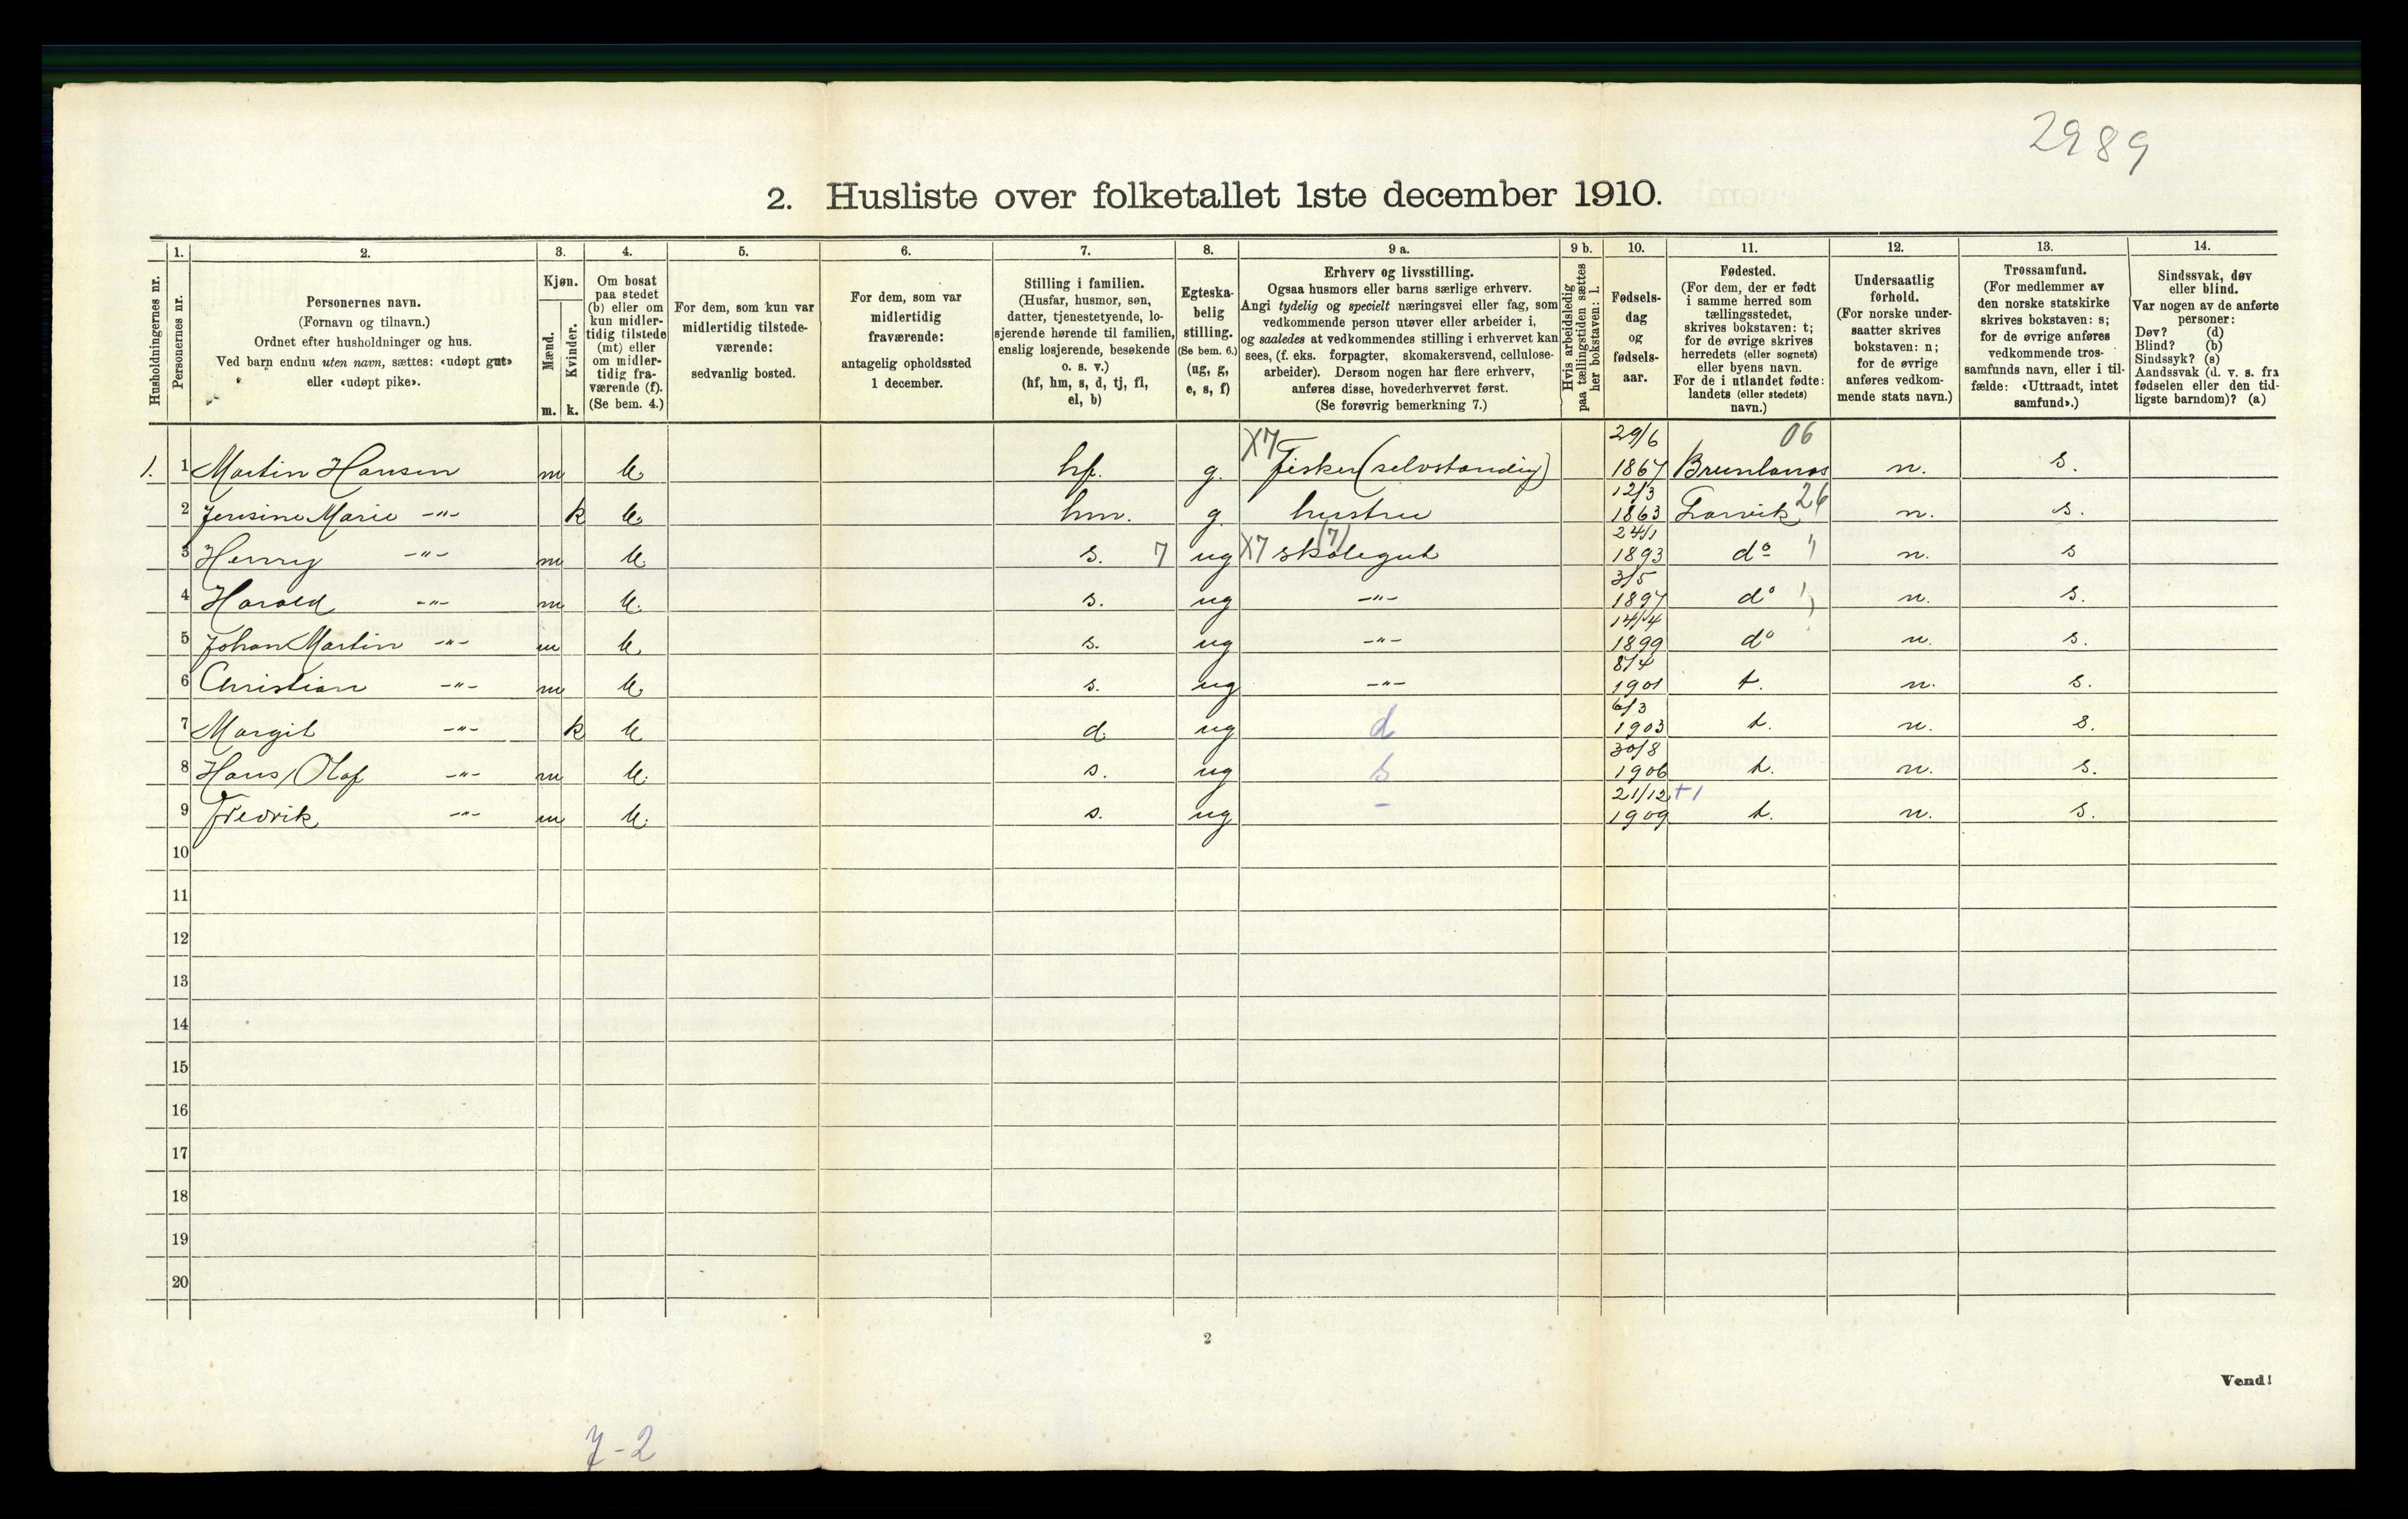 2989
2. Husliste over folketallet 1ste december 1910.
Husholdningernes nr.
1.
Personernes nr.
2.
Personernes navn.
(Fornavn og tilnavn.)
Ordnet efter husholdninger og hus.
Ved barn endnu uten navn, sættes: «udøpt gut»
eller «udøpt pike».
3.
Kjøn.
Mænd.
Kvinder.
m. k.
4.
Om bosat
paa stedet
(b) eller om
kun midler-
tidig tilstede
(mt) eller
om midler-
tidig fra-
værende (f).
(Se bem. 4.)
5.
For dem, som kun var
midlertidig tilstede-
værende:
sedvanlig bosted.
6.
For dem, som var
midlertidig
fraværende:
antagelig opholdssted
1 december.
7.
Stilling i familien.
(Husfar, husmor, søn,
datter, tjenestetyende, lo-
sjerende hørende til familien,
enslig losjerende, besøkende
o. s. v.)
(hf, hm, s, d, tj, fl,
el, b)
8.
Egteska-
belig
stilling.
(Se bem. 6.)
(ug, g,
e, s, f)
9 a.
Erhverv og livsstilling.
Ogsaa husmors eller barns særlige erhverv.
Angi tydelig og specielt næringsvei eller fag, som
vedkommende person utøver eller arbeider i,
og saaledes at vedkommendes stilling i erhvervet kan
sees, (f. eks. forpagter, skomakersvend, cellulose-
arbeider). Dersom nogen har flere erhverv,
anføres disse, hovederhvervet først.
(Se forøvrig bemerkning 7.)
9 b.
Hvis arbeidsledig
paa tællingstiden sættes
her bokstaven: l.
10.
Fødsels-
dag
og
fødsels-
aar.
11.
Fødested.
(For dem, der er født
i samme herred som
tællingsstedet,
skrives bokstaven: t;
for de øvrige skrives
herredets (eller sognets)
eller byens navn.
For de i utlandet fødte:
landets (eller stedets)
navn.)
12.
Undersaatlig
forhold.
(For norske under-
saatter skrives
bokstaven: n;
for de øvrige
anføres vedkom-
mende stats navn.)
13.
Trossamfund.
(For medlemmer av
den norske statskirke
skrives bokstaven: s;
for de øvrige anføres
vedkommende tros-
samfunds navn, eller i til-
fælde: «Uttraadt, intet
samfund».)
14.
Sindssvak, døv
eller blind.
Var nogen av de anførte
personer:
Døv? (d)
Blind? (b)
Sindssyk? (s)
Aandssvak (d. v. s. fra
fødselen eller den tid-
ligste barndom)? (a)
1. 1 Martin Hansen m b. hf. g. X7 Fisker (selvstændig) 29/6 1867 Brunlanæs 06 n. s.
2 Jensine Marie -"- k b. hm. g. hustru 12/3 1863 Larvik 26 n. s.
3 Henry -"- m b. s. 7 ug X7 skolegut (7) 24/1 1893 do " n. s
4 Harald -"- m b. s. ug -"- 3/5 1897 do " n. s.
5 Johan Martin -"- m b. s. ug -"- 14/4 1899 do n. s.
6 Christian -"- m b. s. ug -"- 8/4 1901 t. n. s.
7 Margit -"- k b. d. ug d 6/3 1903 t. n. s.
8 Hans Olaf -"- m b. s. ug s 30/8 1906 t. n. s.
9 Fredrik -"- m b. s. ug - 21/12 +1 1909 t. n. s.
10
11
12
13
14
15
16
17
18
19
20
2
Vend!
7-2